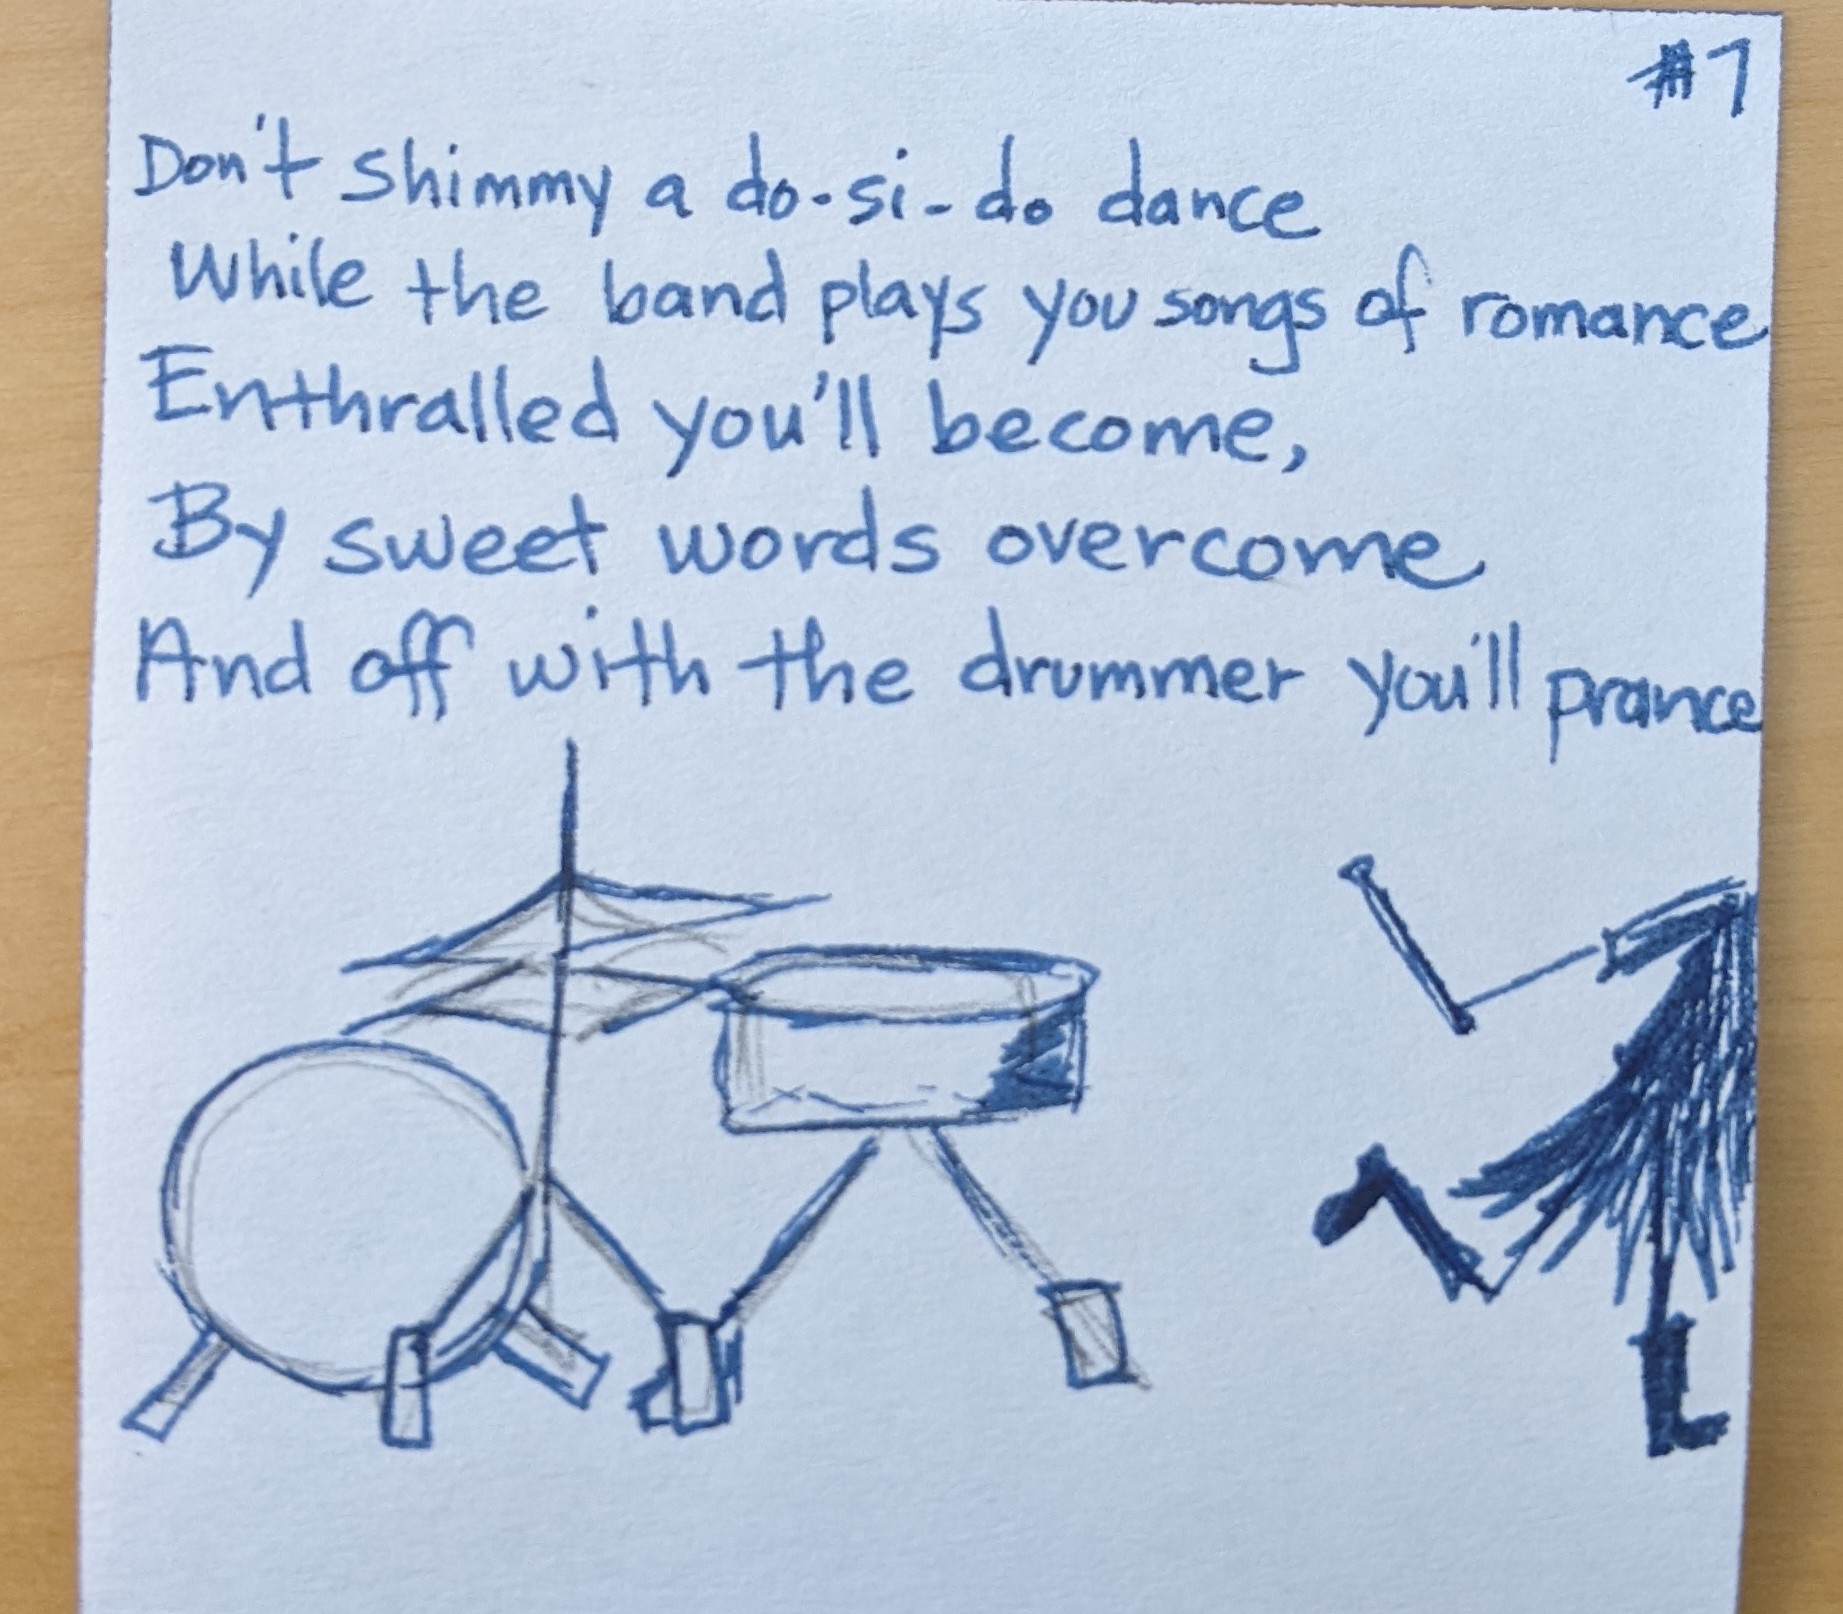 #7
Don't shimmy a do-si-do dance
While the band plays you songs of romance
Enthralled you'll become,
By sweet words overcome
And off with the drummer you'll prance